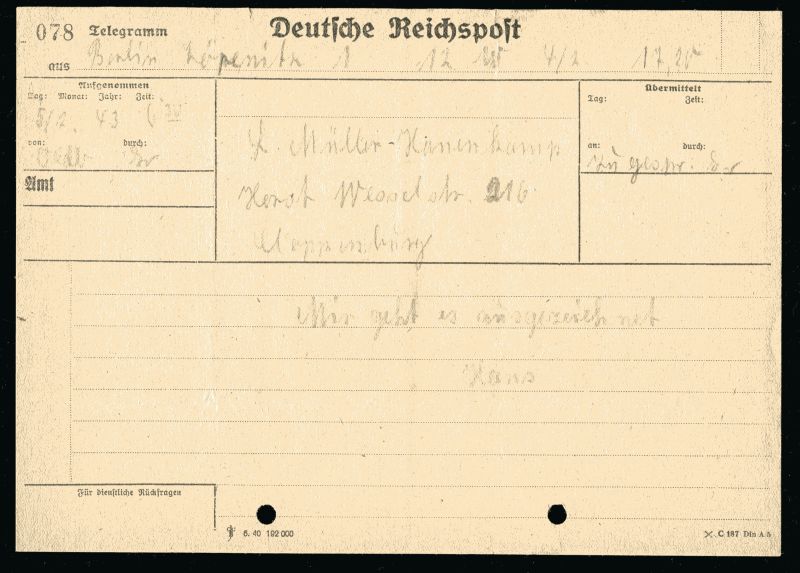 078 Telegramm Deutsche Reichspost
aus Berlin Köpenik 1 12 4/2 17,25
Aufgenommen
Tag: Monat: Jahr: Zeit:
5/2. 43
von: durch:
Amt
Übermittelt
Tag: Zeit:
an: durch:
zu gespr.
Müller-Hanenkamp
Horst Wesselstr. 216
Cloppenburg
Mir geht es ausgezeichnet
Hans
Für dienstliche Rückfragen
6. 40 192 000
C 187 Din A 5